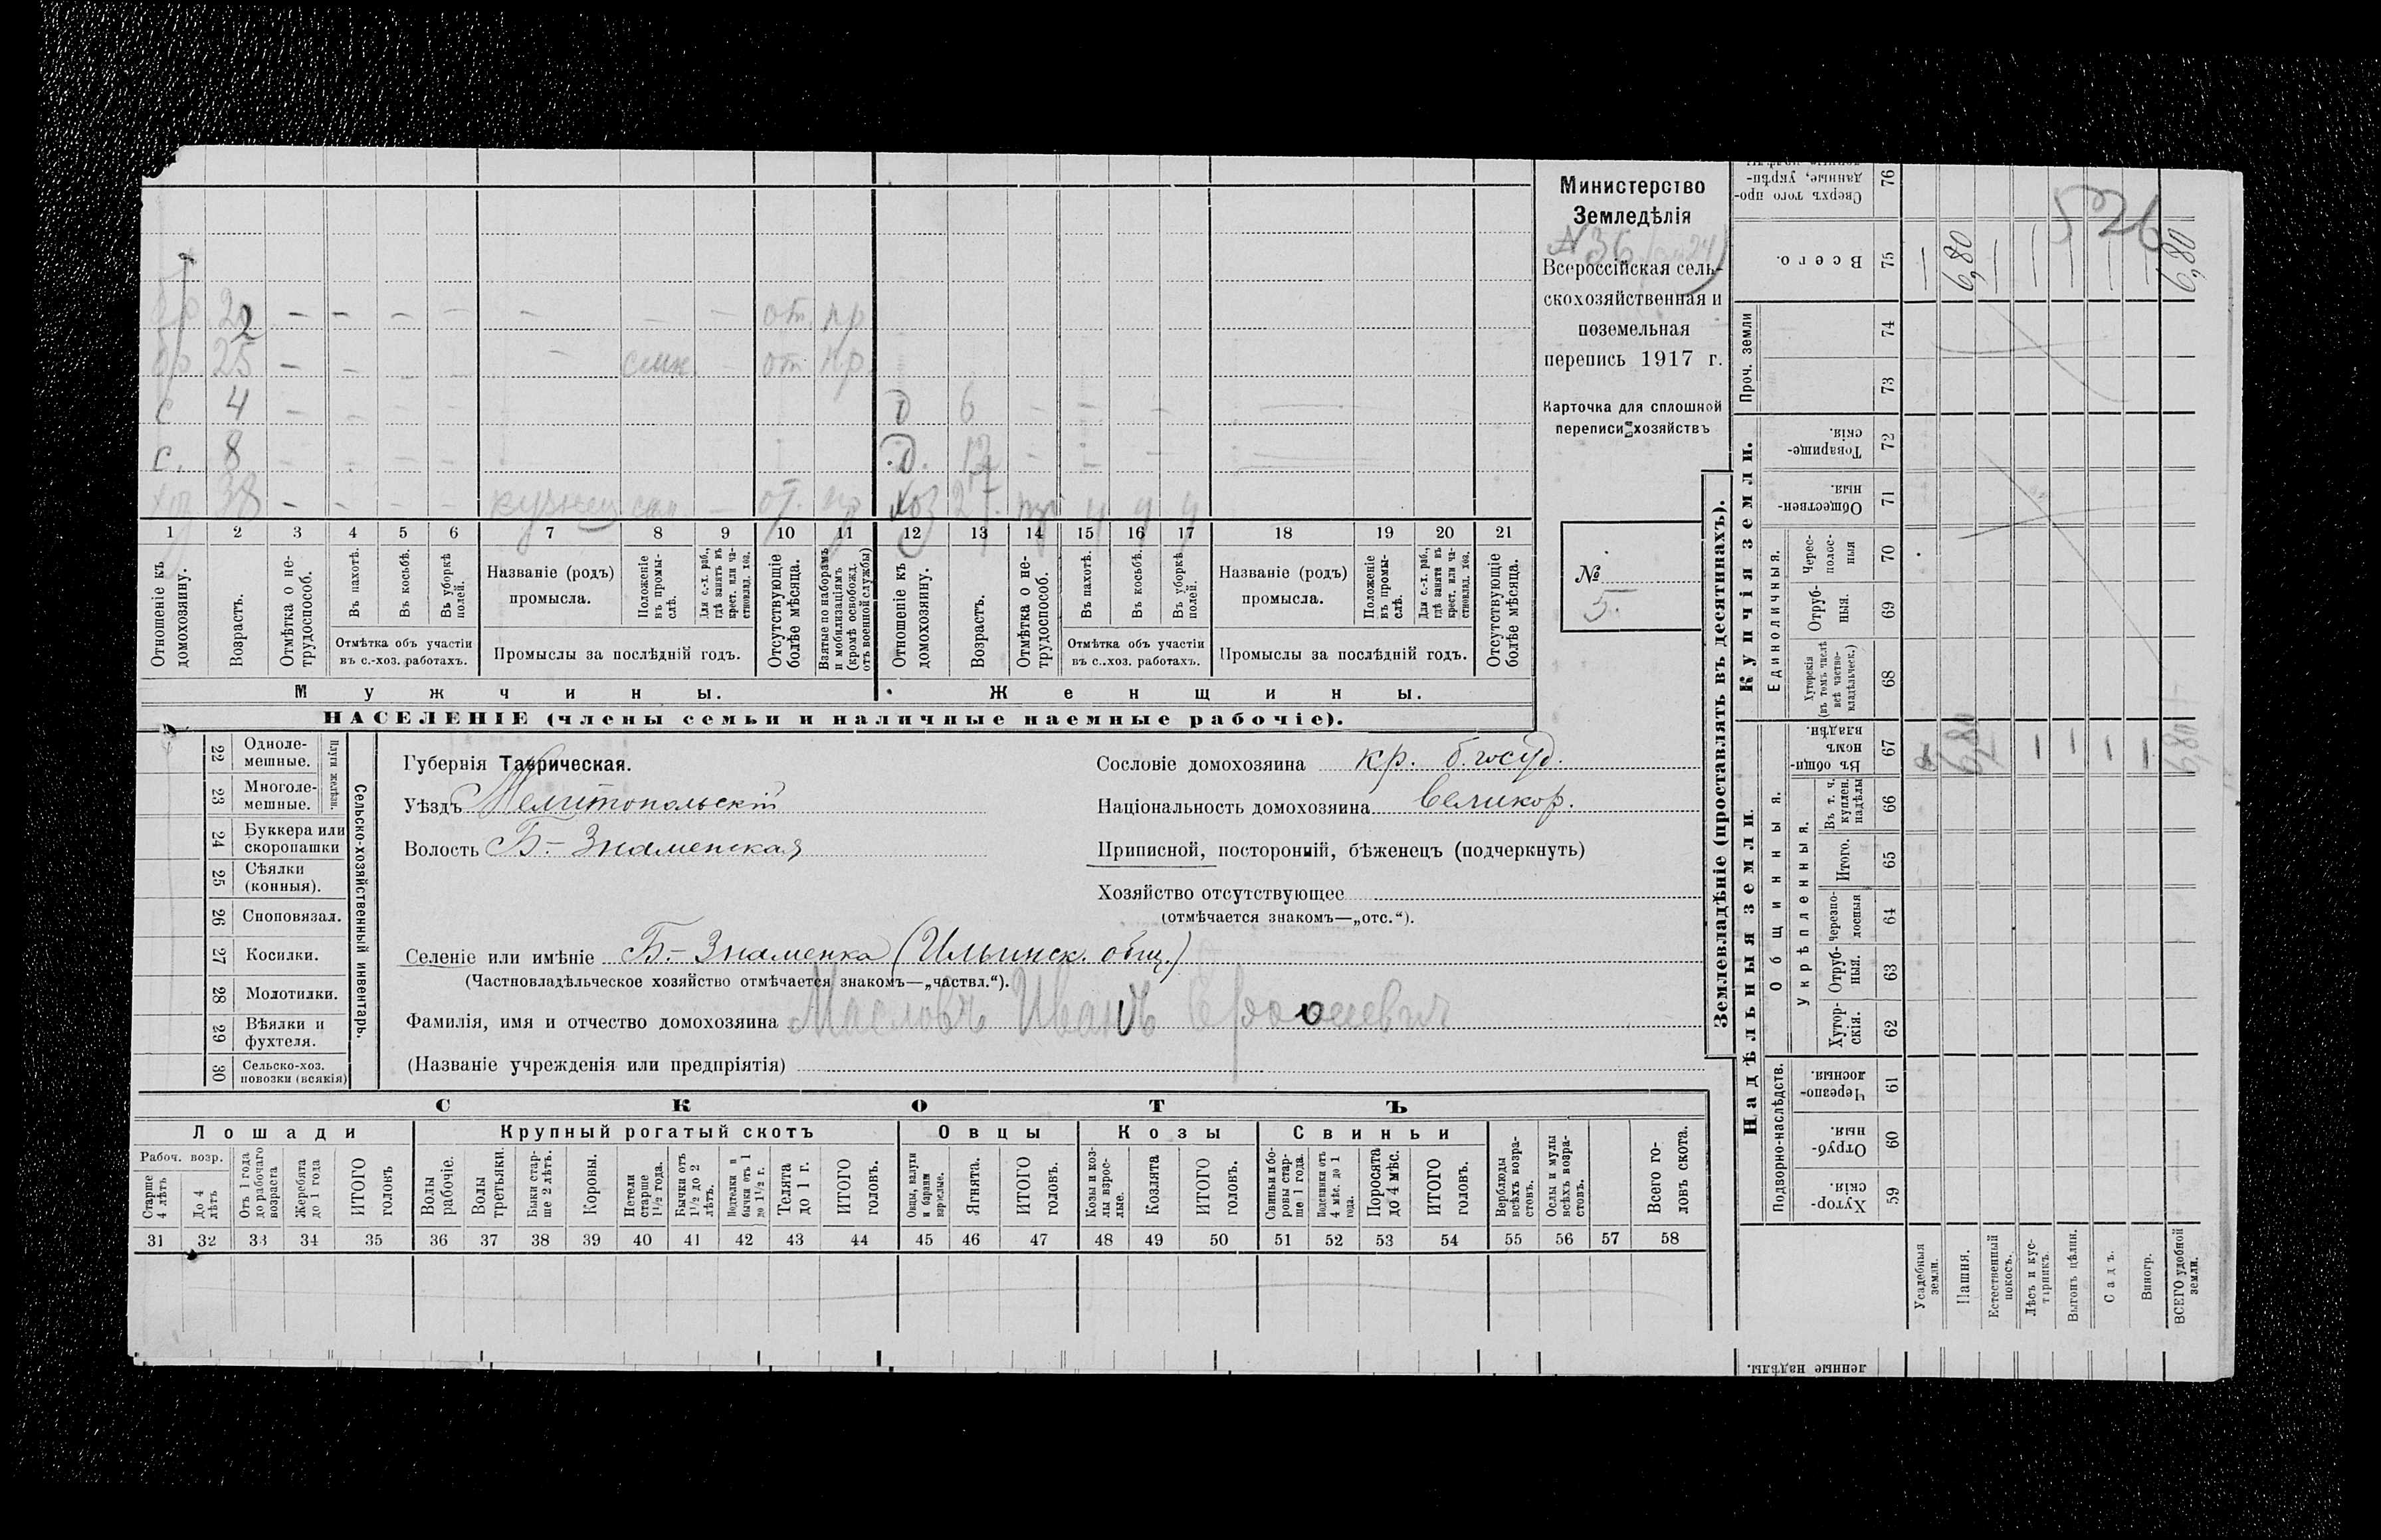 бр 22 — — — — — — — от. пр
бр 25 — — — — — от пр.
с 4 — — — — — д 6 — — —
с. 8 — — — — д. 12 — — —
хоз 38 — — — — кузнец — от. пр хоз 27.
1 2 3 4 5 6 7 8 9 10 11 12 13 14 15 16 17 18 19 20 21
Отношеніе къ домохозяину.
Возрастъ.
Отмѣтка о не-
трудоспособ.
Въ пахотѣ.
Въ косьбѣ.
Въ уборкѣ
полей.
Отмѣтка объ участіи
въ с.-хоз. работахъ.
Названіе (родъ)
промысла.
Положеніе
въ промы-
слѣ.
Для с.-х. раб.,
гдѣ занятъ въ
крест. или ча-
стновлад. хоз.
Промыслы за послѣдній годъ.
Отсутствующіе
болѣе мѣсяца.
Взятые по наборамъ
и мобилизаціямъ
(кромѣ освобожд.
отъ военной службы)
Отношеніе къ
домохозяину.
Возрастъ.
Отмѣтка о не-
трудоспособ.
Въ пахотѣ.
Въ косьбѣ.
Въ уборкѣ
полей.
Отмѣтка объ участіи
въ с..хоз. работахъ.
Названіе (родъ)
промысла.
Положеніе
въ промы-
слѣ.
Для с.-х. раб.,
гдѣ занята въ
крест. или ча-
стновлад. хоз.
Промыслы за послѣдній годъ.
Отсутствующіе
болѣе мѣсяца.
Мужчины.
Женщины.
НАСЕЛЕНІЕ (члены семьи и наличные наемные рабочіе).
Министерство
Земледѣлія
N 36
Всероссійская сель-
скохозяйственная и
поземельная
перепись 1917 г.
Карточка для сплошной
переписи хозяйствъ
№
5.
22 Одноле-
мешные.
23 Многоле-
мешные.
Плуги желѣзн.
24 Буккера или
скоропашки
25 Сѣялки
(конныя).
26 Сноповязал.
27 Косилки.
28 Молотилки.
29 Вѣялки и
фухтеля.
30 Сельско-хоз.
повозки (всякія)
Сельско-хозяйственный инвентарь.
Губернія Таврическая.
Уѣздъ Мелитопольскій
Волость Б-Знаменская
Сословіе домохозяина кр. б. госуд.
Національность домохозяина великор.
Приписной, посторонній, бѣженецъ (подчеркнуть)
Хозяйство отсутствующее
(отмѣчается знакомъ—„отс.“).
Селеніе или имѣніе Б.-Знаменка (Ильинск. общ.)
(Частновладѣльческое хозяйство отмѣчается знакомъ—„частвл.“).
Фамилія, имя и отчество домохозяина Масловъ Иванъ
(Названіе учрежденія или предпріятія)
СКОТЪ
Лошади
Крупный рогатый скотъ
Овцы
Козы
Свиньи
Рабоч. возр.
Старше
4 лѣтъ
До 4
лѣтъ
Отъ 1 года
до рабочаго
возраста
Жеребята
до 1 года
ИТОГО
головъ
Волы
рабочіе.
Волы
третьяки.
Быки стар-
ше 2 лѣтъ.
Коровы.
Нетели
старше
1½ года.
Бычки отъ
1½ до 2
лѣтъ.
Подтелки и
бычки отъ 1
до 1½ г.
Телята
до 1 г.
ИТОГО
головъ.
Овцы, валухи
и бараны
взрослые.
Ягнята.
ИТОГО
головъ.
Козы и коз-
лы взрос-
лые.
Козлята
ИТОГО
головъ.
Свиньи и бо-
ровы стар-
ше 1 года.
Подсвинки отъ
4 мѣс. до 1
года.
Поросята
до 4 мѣс.
ИТОГО
головъ.
Верблюды
всѣхъ возра-
стовъ.
Ослы и мулы
всѣхъ возра-
стовъ.
Всего го-
ловъ скота.
31 32 33 34 35 36 37 38 39 40 41 42 43 44 45 46 47 48 49 50 51 52 53 54 55 56 57 58
Землевладѣніе (проставлять въ десятинахъ).
Надѣльныя земли.
Купчія земли.
Проч. земли
Подворно-наслѣдств.
Общинныя.
Укрѣпленныя.
Единоличныя.
Сверхъ того про-
данные, укрѣп-
76
Всего.
75
74
73
Товарище-
скія.
72
Обществен-
ныя.
71
Черес-
полос-
ныя
70
Отруб-
ныя.
69
Хуторскія
(въ томъ числѣ
всѣ частно-
владѣльческ.)
68
Въ общин-
номъ
владѣн.
67
Въ т. ч.
куплен.
надѣлы
66
Итого.
65
Черезпо-
лосныя
64
Отруб-
ныя.
63
Хутор-
скія.
62
Черезпо-
лосныя.
61
Отруб-
ныя.
60
Хутор-
скія.
59
Усадебныя
земли.
Пашня.
Естественный
покосъ.
Лѣсъ и кус-
тарникъ.
Выгонъ цѣлин.
Садъ.
Виногр.
ВСЕГО удобной
земли.
ленные надѣлы.
526
6,80
6,80
6,80
6,80